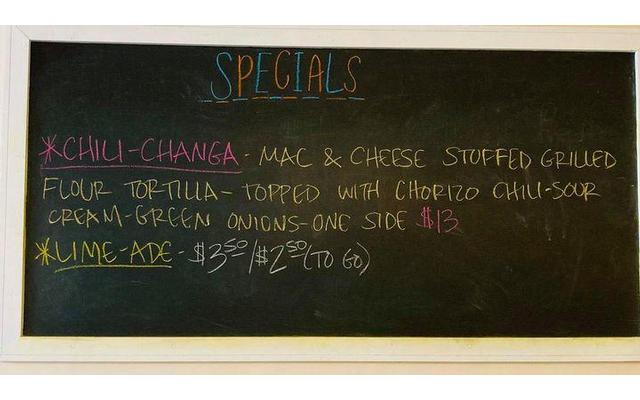 SPECIALS
*CHILI-CHANGA - MAC & CHEESE STUFFED GRILLED
FLOUR TORTILLA - TOPPED WITH CHORIZO CHILI-SOUR
CREAM-GREEN ONIONS-ONE SIDE $13
*LIME-ADE - $3.50/$2.50 (TO GO)